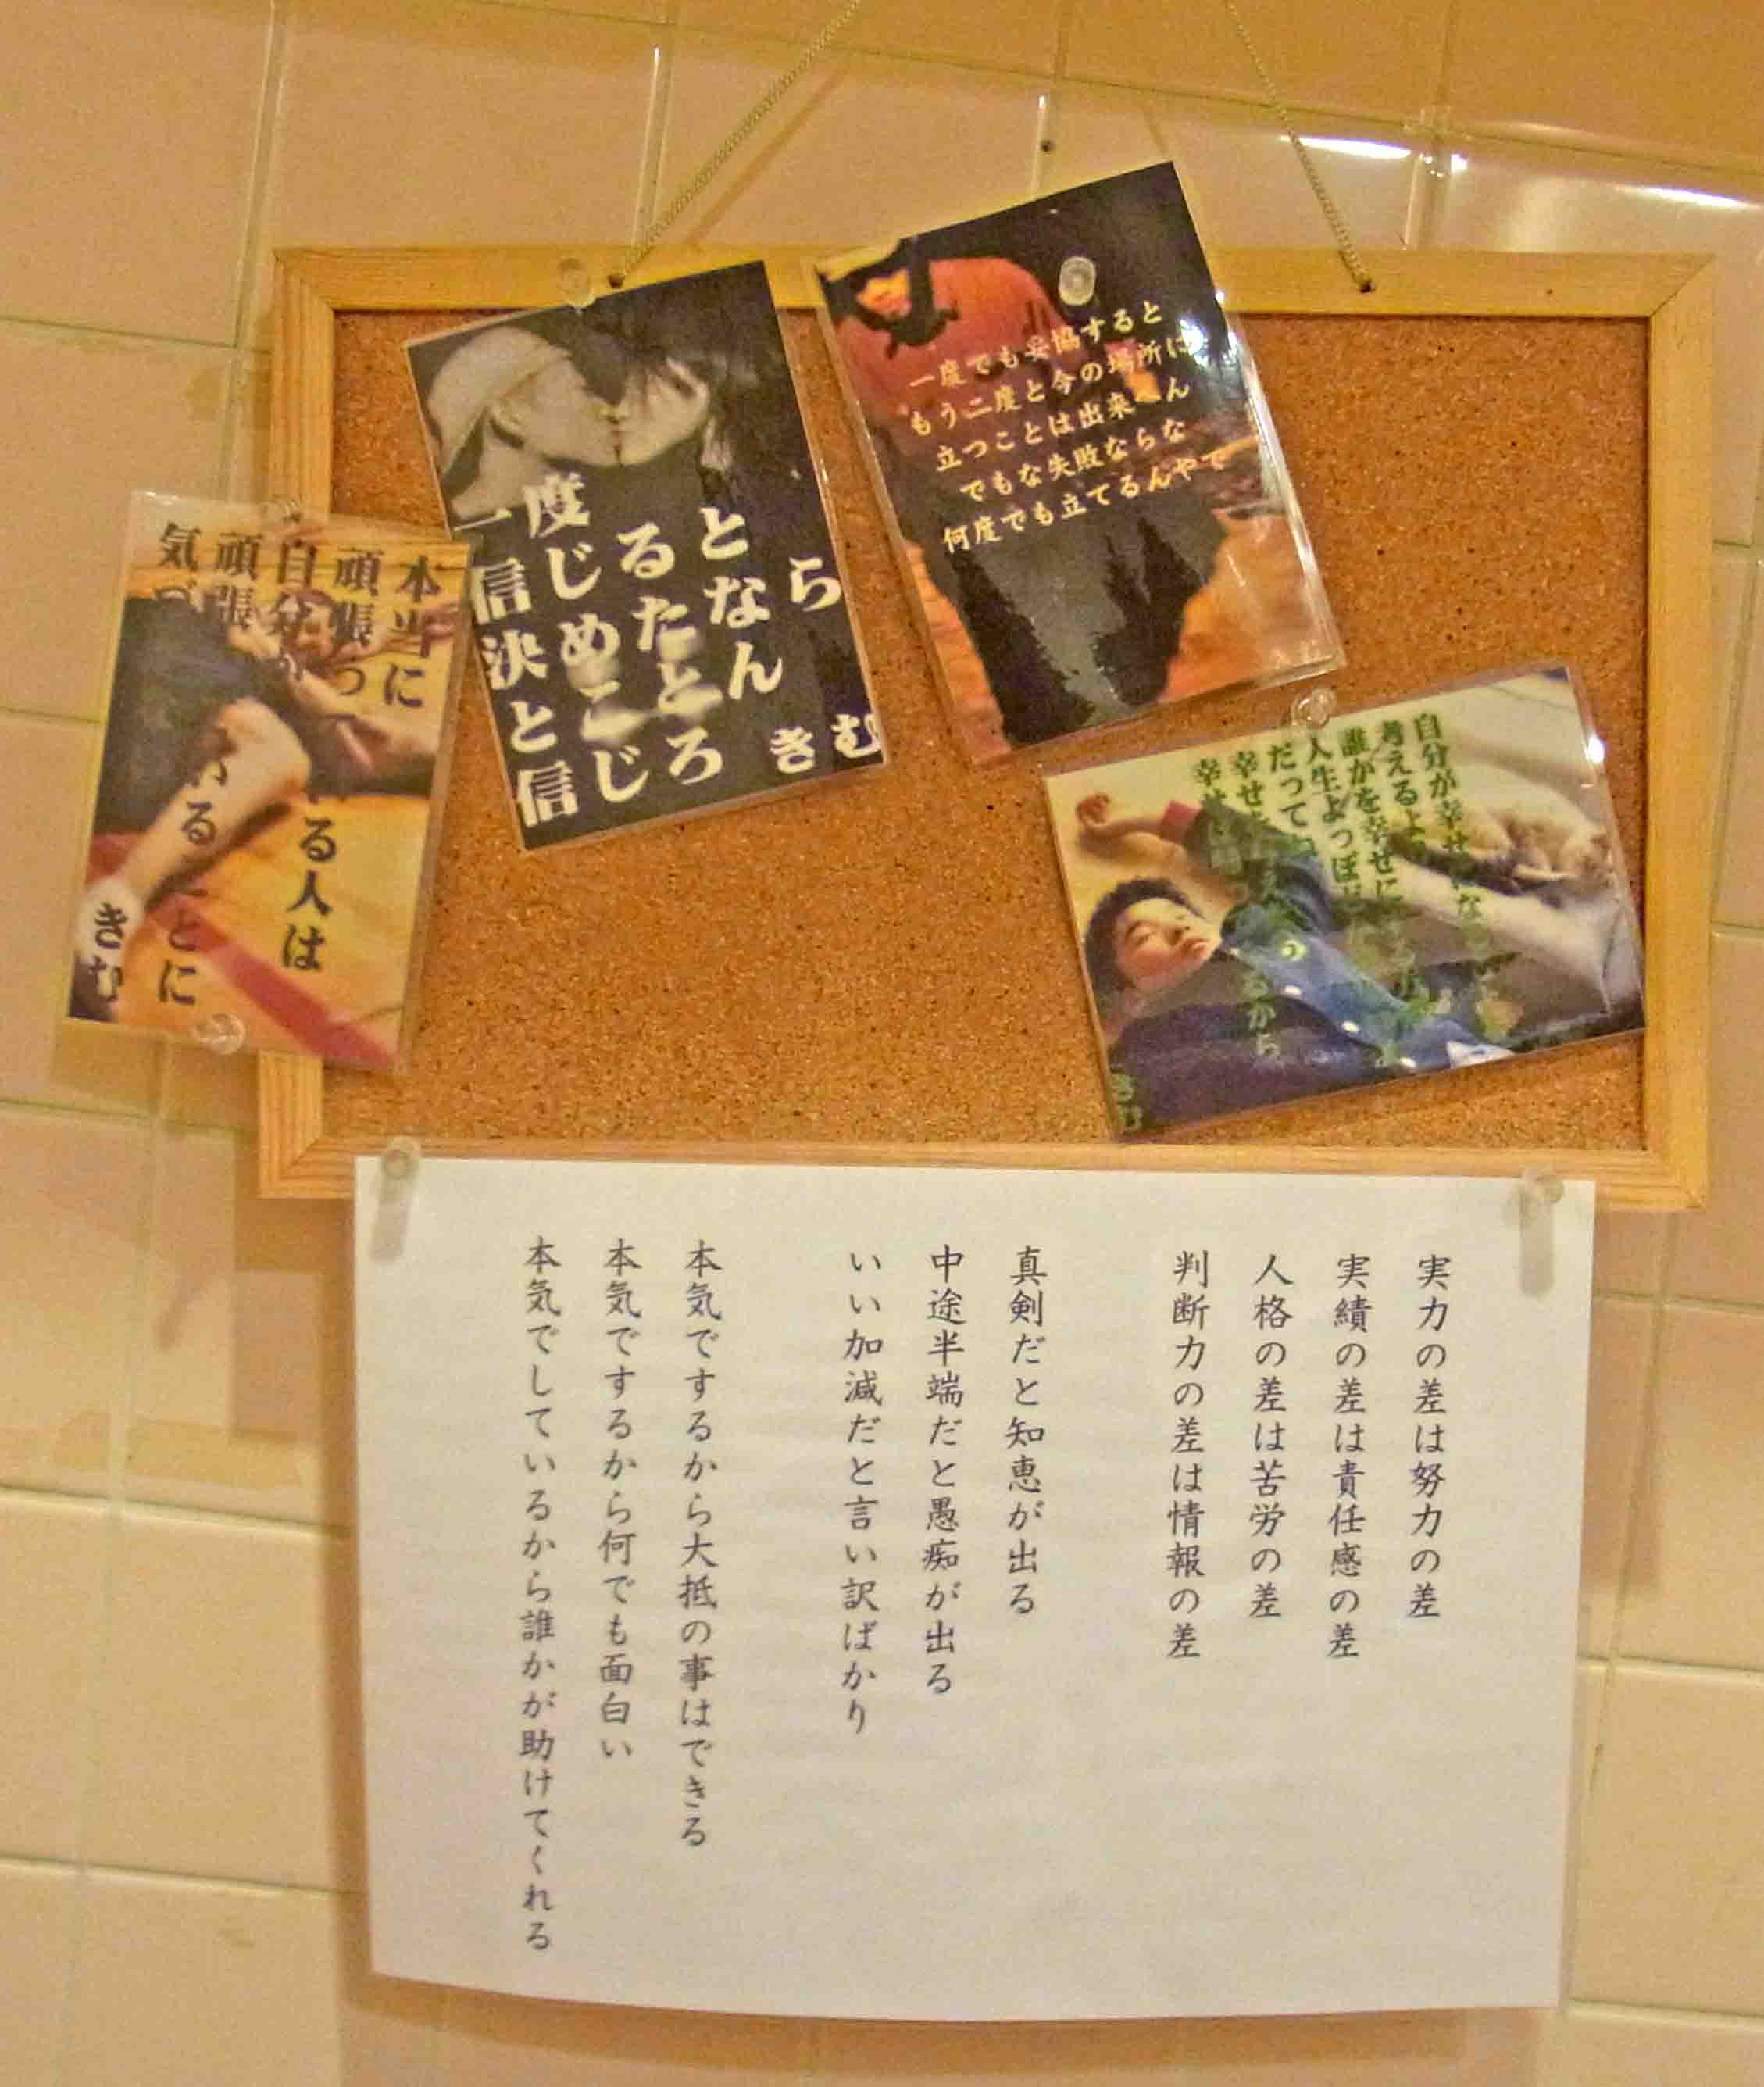 一度
信じると
決めたなら
とことん
信じろ
きむ
一度でも妥協すると
もう二度と今の場所に
立つことは出来へん
でもな失敗ならな
何度でも立てるんやで
本当に
頑張っ
る人は
自分
頑張
いることに
気づ
きむ
自分が幸せ
考えるよ
誰かを幸せに
人生よっぽど
だって
幸せ
から
幸せ
きむ
実力の差は努力の差
実績の差は責任感の差
人格の差は苦労の差
判断力の差は情報の差
真剣だと知恵が出る
中途半端だと愚痴が出る
いい加減だと言い訳ばかり
本気でするから大抵の事はできる
本気でするから何でも面白い
本気でしているから誰かが助けてくれる